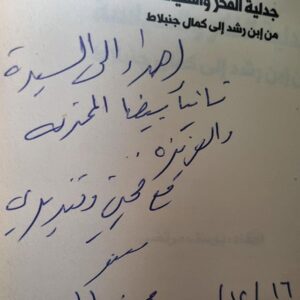 جدلية الفكر والسياسة
من إبن رشد إلى كمال جنبلاط
إهداء الى السيدة
تانيا بيضا المحترمه
والعزيزه ..
مع محبتي وتقديري
١٦ / ١٢ /